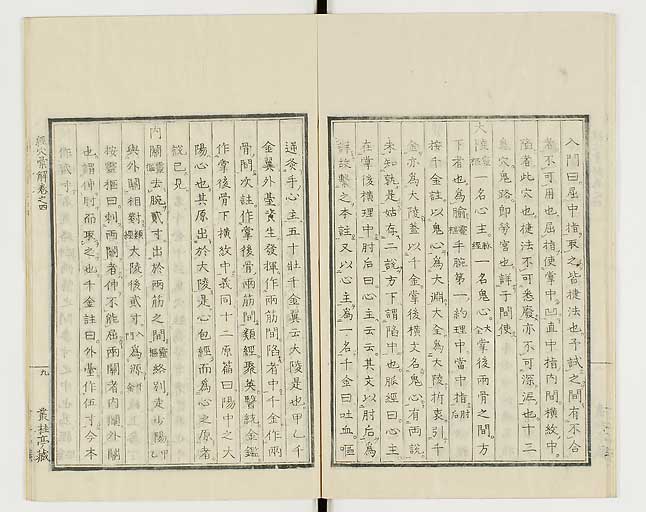 入門曰屈中指取之皆捷法也予試之間有不合
者不可用也屈指使掌中凹直中指内間横紋中
陷者此穴也捷法不可悉廢亦不可深泥也十三
鬼穴鬼路即勞宮也詳于間使
大陵 靈樞 一名心主 脉經 一名鬼心 大全 掌後兩骨之間方
下者也為腧 靈樞 手腕第一約理中當中指 肘后
按千金註以鬼心為大淵大全為大陵折衷引千
金亦為大陵蓋以千金掌後横文名鬼心有兩説
未知孰是姑存二説方下謂陷中也脉經曰心主
在掌後横理中肘后曰心主云云其文以肘后為
詳故繫之本註又以心主為一名千金曰吐血嘔
逆灸手心主五十壯千金翼云大陵是也甲乙千
金翼外臺資生發揮作兩筋間陷者中千金作兩
骨間次註作掌後骨兩筋間類經聚英醫統金鑑
作掌後骨下横紋中義同十二原篇曰陽中之太
陽心也其原出於大陵是心包經而為心之原者
説已見
内關 靈樞 去腕貳寸出於兩筋之間 靈樞 絡別走少陽 甲乙
與外關相對 類經 大陵後貳寸 入門 為源 千金
按靈樞曰刺兩關者伸不能屈兩關者内關外關
也謂伸肘而取之也千金註曰外臺作伍寸今本
作貳寸
經穴彙解卷之四
九
叢桂亭藏